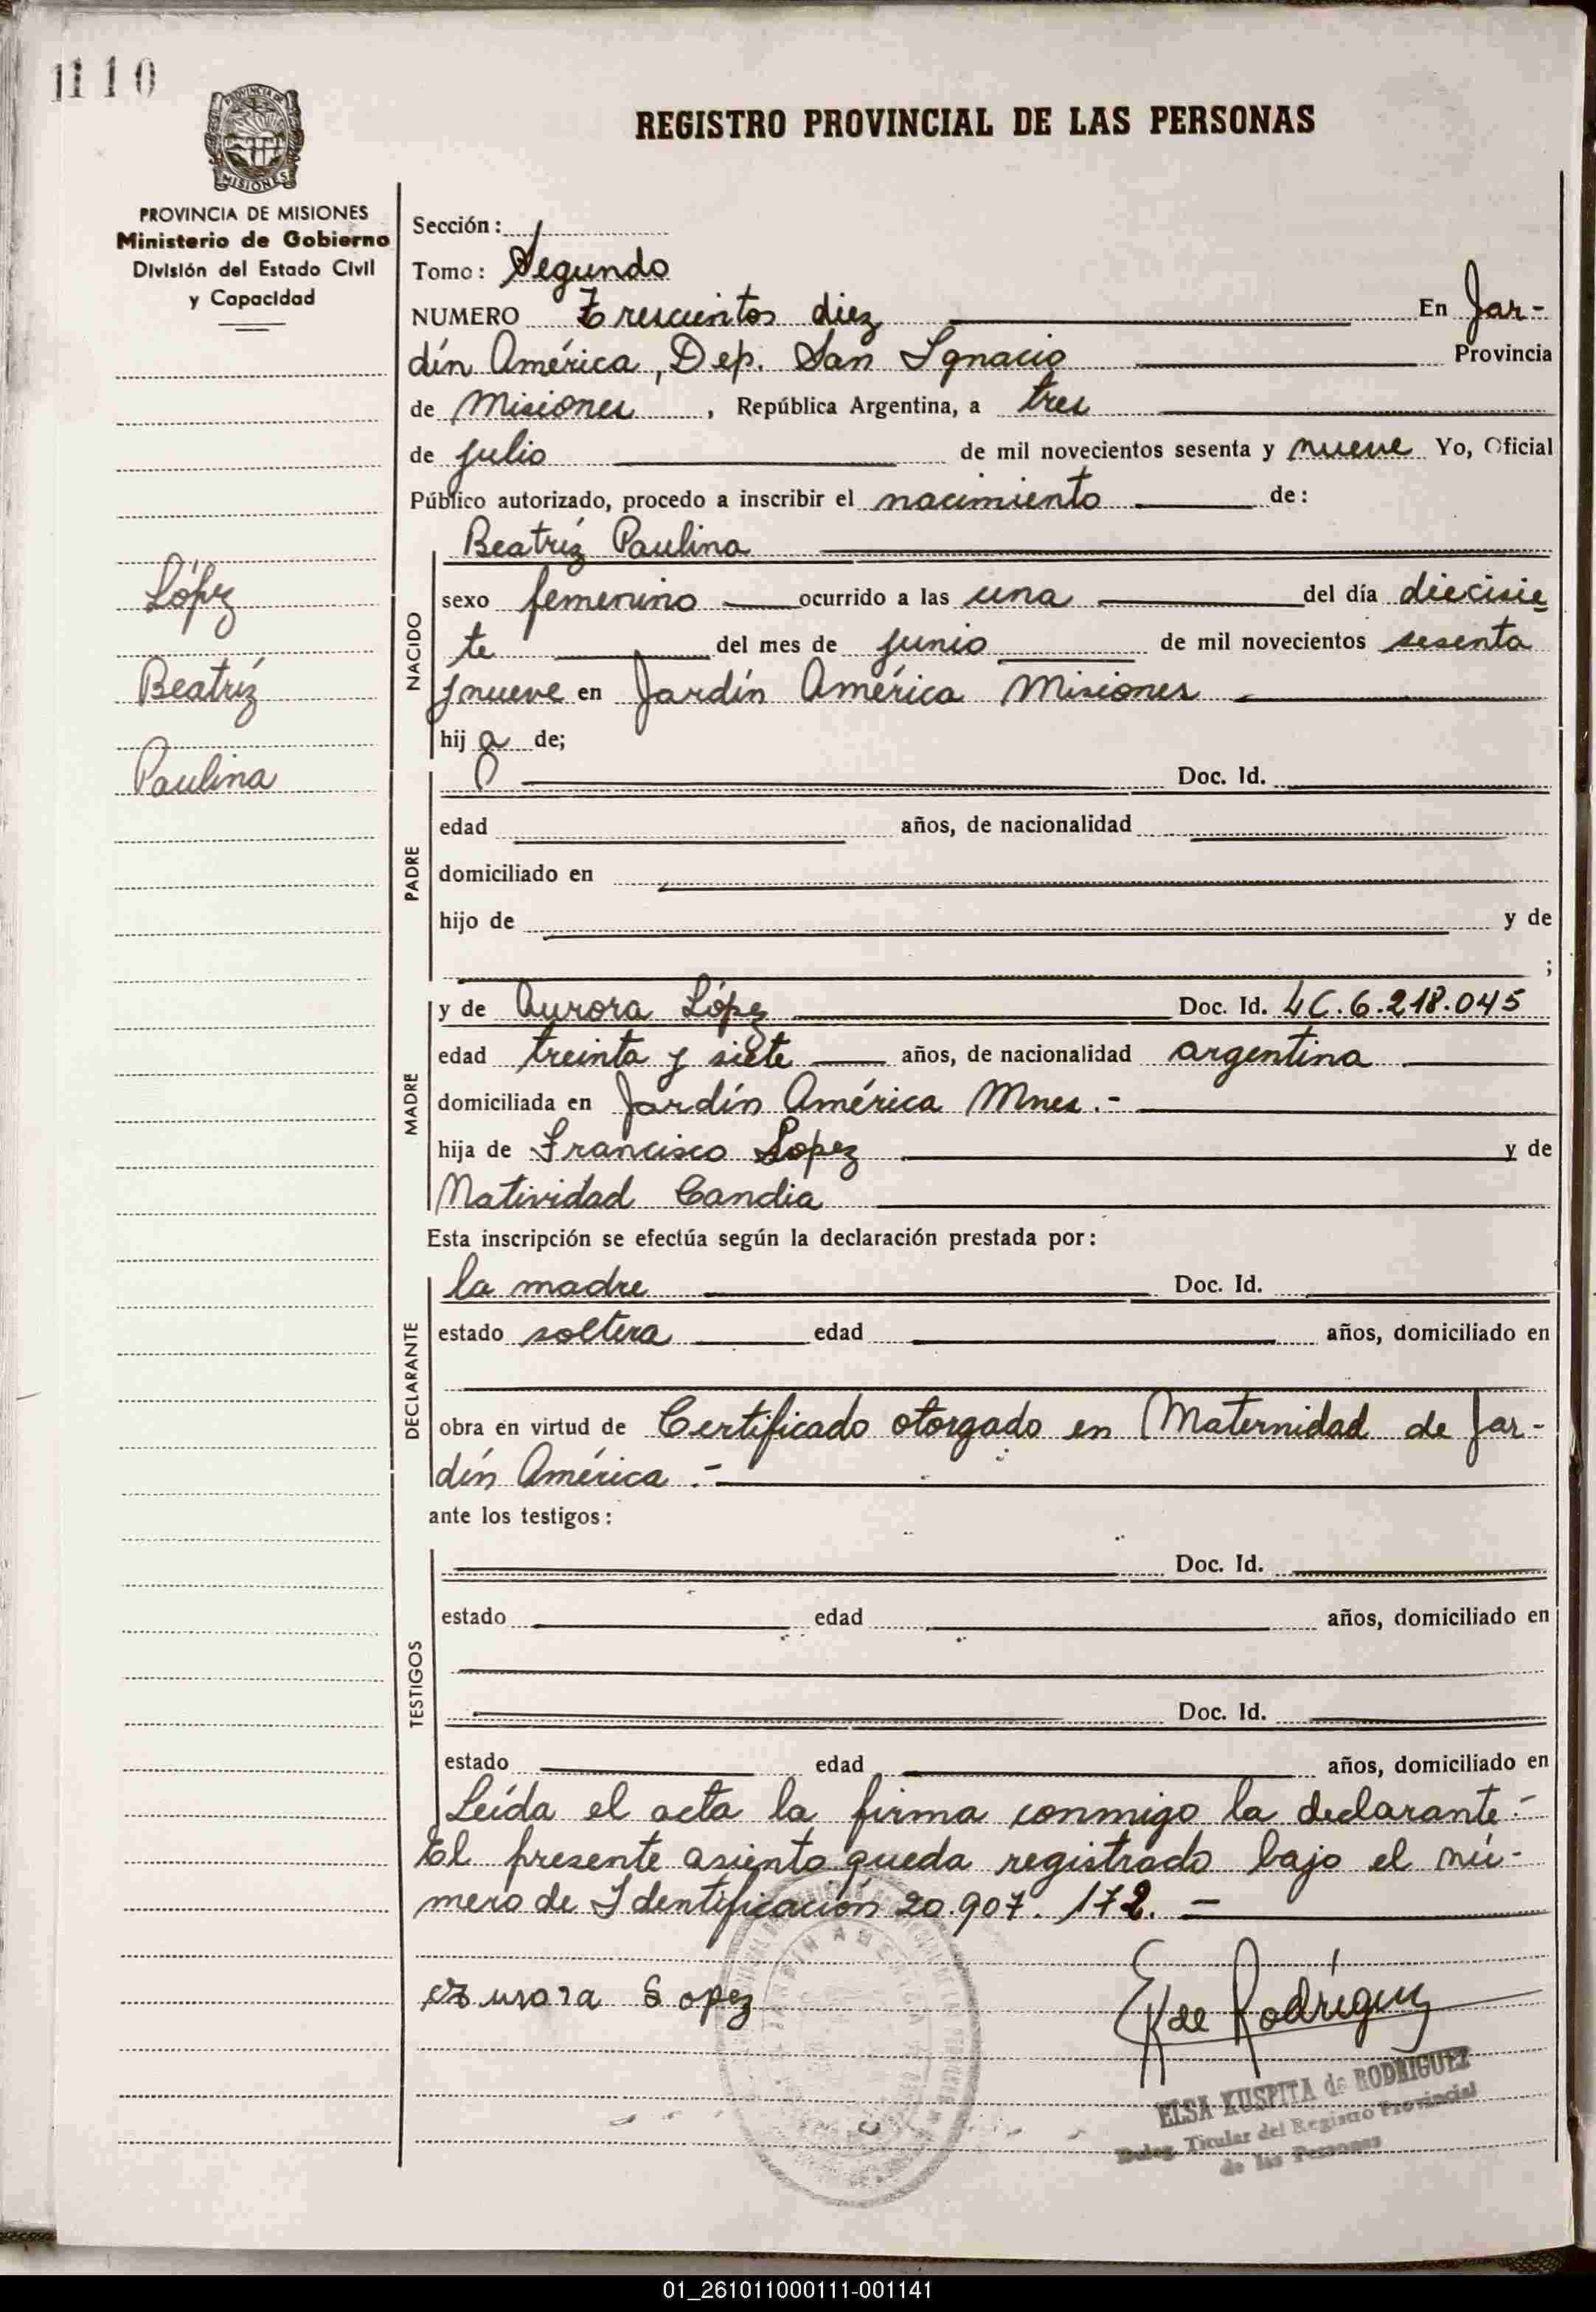 1110
PROVINCIA DE
MISIONES
REGISTRO PROVINCIAL DE LAS PERSONAS
PROVINCIA DE MISIONES
Ministerio de Gobierno
División del Estado Civil
y Capacidad
Sección:
Tomo: Segundo
NUMERO Trescientos diez En Jar-
dín América, Dep. San Ignacio Provincia
de Misiones, República Argentina, a tres
de julio de mil novecientos sesenta y nueve Yo, Oficial
Público autorizado, procedo a inscribir el nacimiento de:
López
Beatríz
Paulina
NACIDO
Beatríz Paulina
sexo femenino ocurrido a las una del día diecisie
te del mes de junio de mil novecientos sesenta
y nueve en Jardín América Misiones
hija de;
PADRE
Doc. Id.
edad años, de nacionalidad
domiciliado en
hijo de y de
;
MADRE
y de Aurora López Doc. Id. LC. 6.218.045
edad treinta y siete años, de nacionalidad argentina
domiciliada en Jardín América Mnes.-
hija de Francisco Lopez y de
Natividad Candia
Esta inscripción se efectúa según la declaración prestada por:
DECLARANTE
la madre Doc. Id.
estado soltera edad años, domiciliado en
obra en virtud de Certificado otorgado en Maternidad de Jar-
dín América.-
ante los testigos:
TESTIGOS
Doc. Id.
estado edad años, domiciliado en
Doc. Id.
estado edad años, domiciliado en
Leída el acta la firma conmigo la declarante.-
El presente asiento queda registrado bajo el nú-
mero de Identificación 20.907.172.-
JARDIN AMERICA
Aurora Lopez
EK de Rodríguez
ELSA KUSPITA de RODRIGUEZ
Deleg. Titular del Registro Provincial
de las Personas
01_261011000111-001141